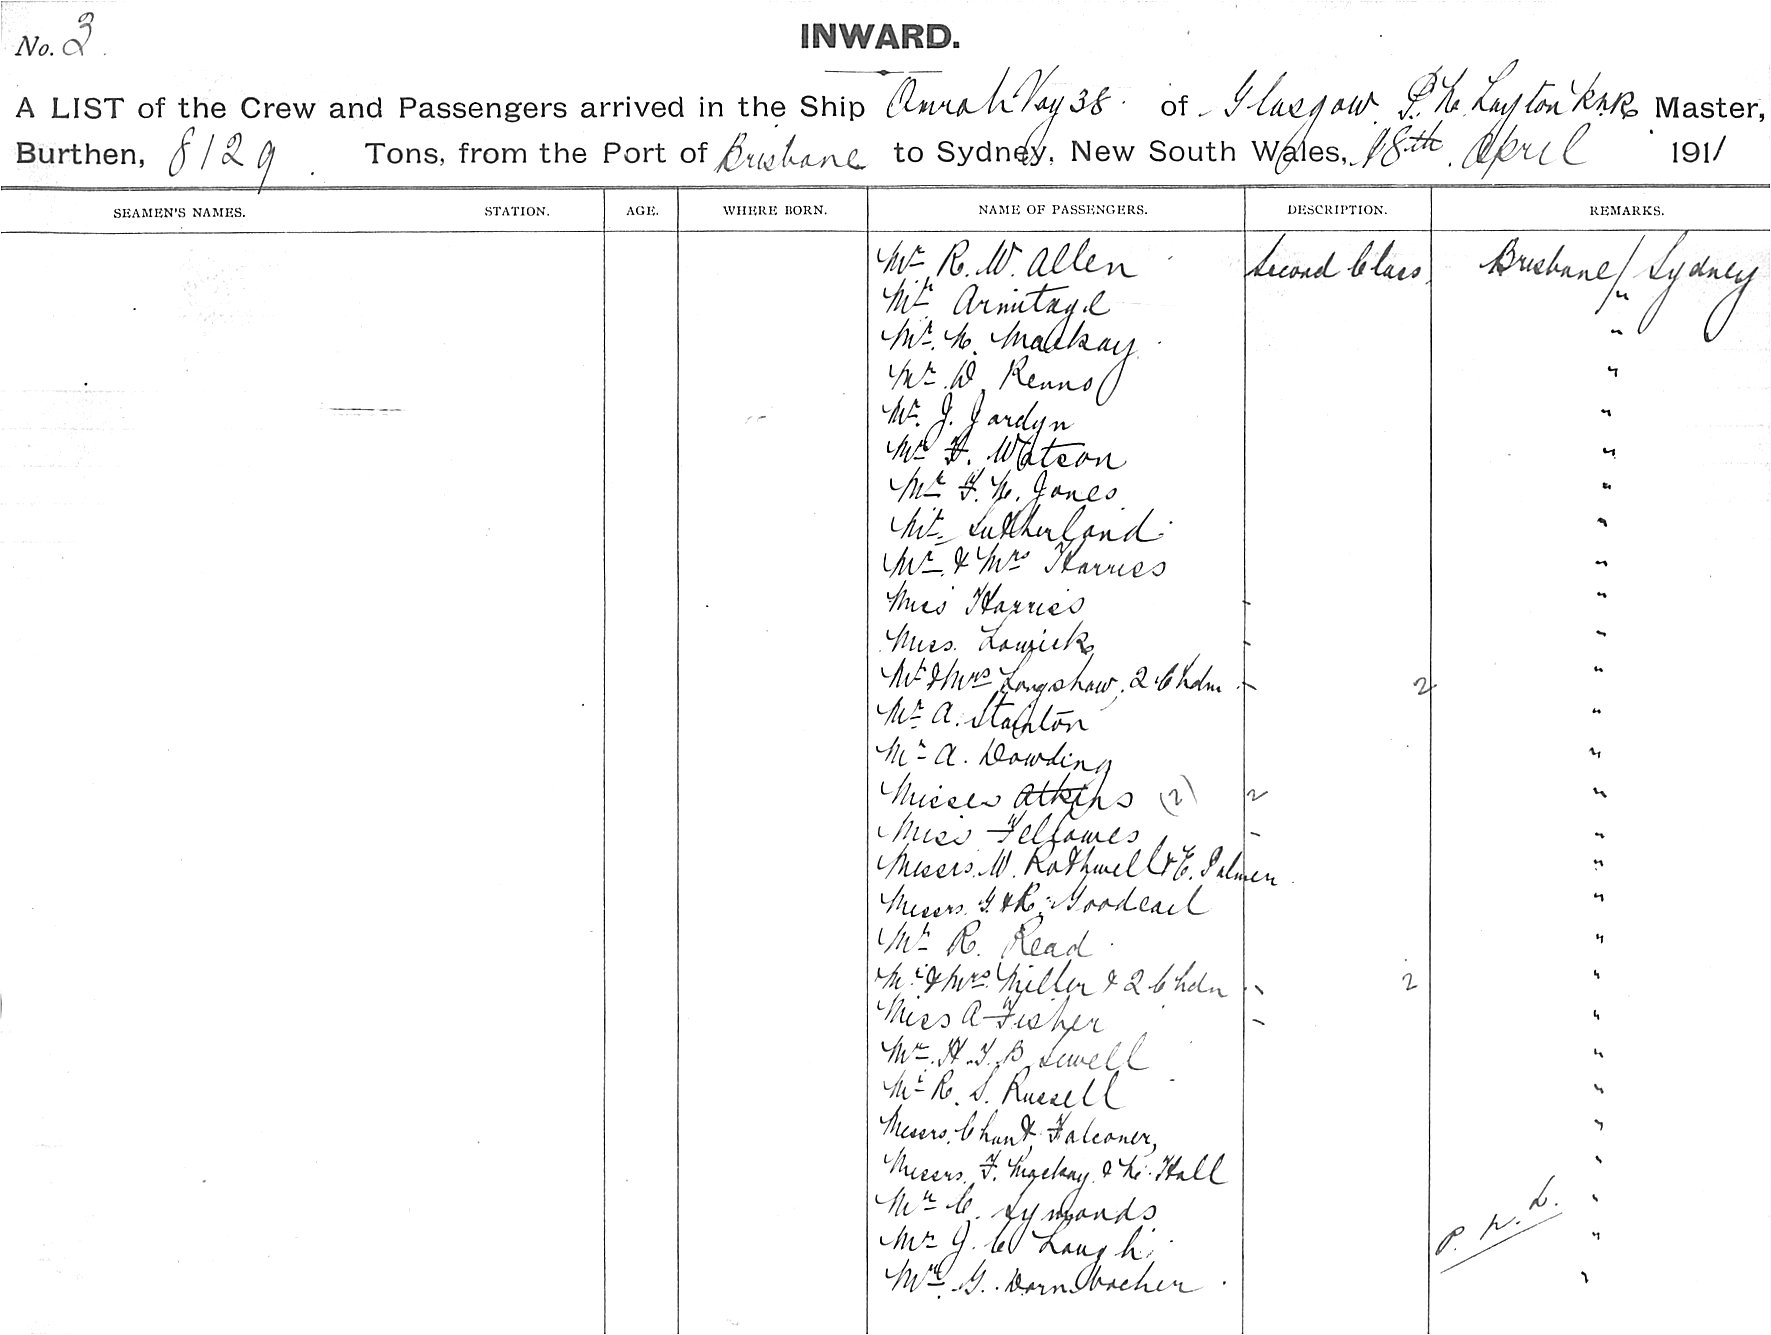 No. 3
INWARD.
A LIST of the Crew and Passengers arrived in the Ship Omrah Voy 38. of Glasgow, P. N. Layton R.N.R. Master,
Burthen, 8129 Tons, from the Port of Brisbane to Sydney, New South Wales, 18th April 1911
SEAMEN'S NAMES. STATION. AGE. WHERE BORN. NAME OF PASSENGERS. DESCRIPTION. REMARKS.
Mr R. W. Allen Second Class Brisbane / Sydney
Mr Armitage "
Mr. N. Mackay "
Mr. D. Renno "
Mr. J. Jardyn "
Mr F. Watson "
Mr F. N. Jones "
Mr. Sutherland "
Mr. & Mrs Harries "
Miss Harries - "
Miss. Lowick - "
Mr & Mrs Longshaw, 2 Chdn - 2 "
Mr A. Stainton "
Mr A. Dowding "
Misses Atkins (2) 2 "
Miss Fellowes - "
Messrs. W. Rothwell & E. Palmer "
Messrs. G. & R. Goodearl "
Mr R. Read "
Mr & Mrs. Miller & 2 Chdn - 2 "
Miss A Fisher - "
Mr. H. T. B. Sewell "
Mr R. S. Russell "
Messrs. Chant & Falconer, "
Messrs. F. Mackay & N. Hall "
Mr C. Symonds "
Mr J. C Laugh "
P. N. L.
Mr. G. Dornbacher "